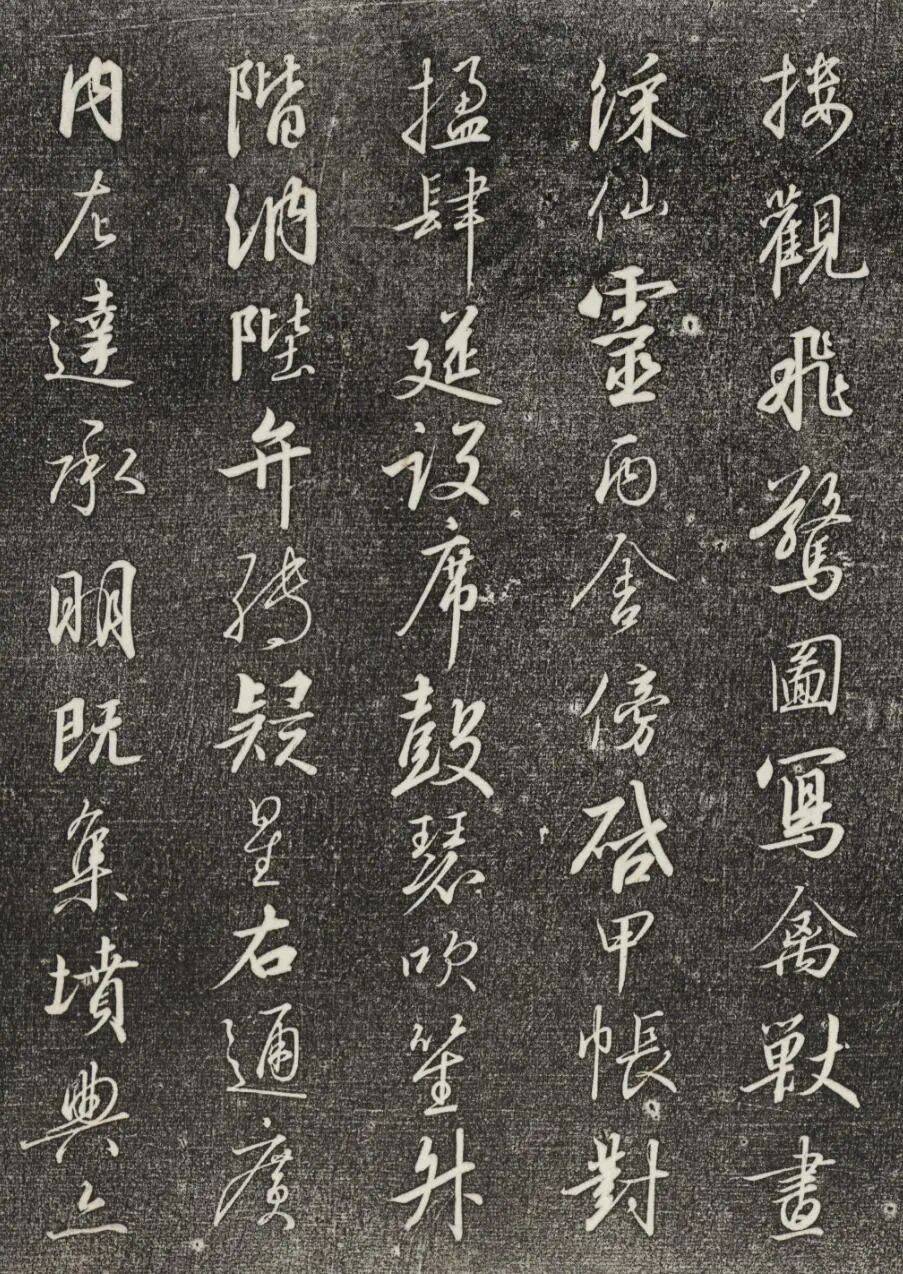 楼觀飛驚圖寫禽獸畫
綵仙靈丙舍傍啓甲帳對
楹肆筵設席鼓瑟吹笙升
階納陛弁轉疑星右通廣
内左達承明既集墳典亦